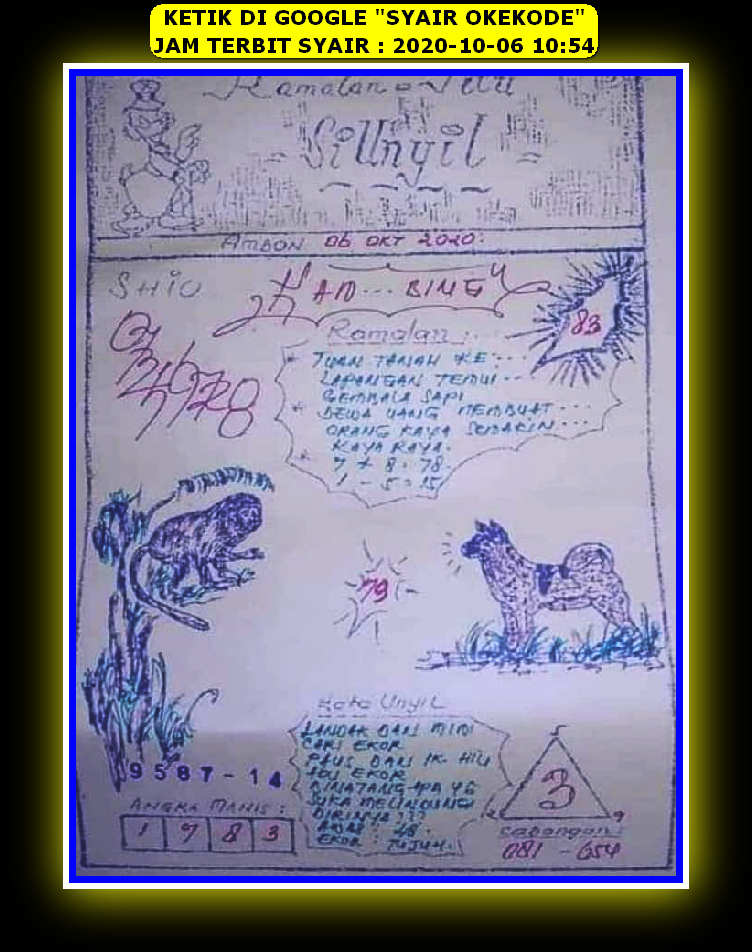 KETIK DI GOOGLE "SYAIR OKEKODE"
JAM TERBIT SYAIR : 2020-10-06 10:54
Ramalan
SiUnyil
AMBON 06 OKT 2020.
SHIO
83
Ramalan :
TUAN TANAH KE....
LAPANGAN TEMUI...
GEMBALA SAPI
DEWA UANG MEMBUAT...
ORANG KAYA SEMAKIN...
KAYA RAYA.
7 + 8 = 78.
1 - 5 = 15
79
Kata Unyil
LANDAK DAN MIMI
CARI EKOR
PAUS DAN IK. HIU
ADU EKOR
BINATANG APA YG
SUKA MELINDUNGI
DIRINYA???
EKOR : TUJUH.
9587-14
ANGKA MANIS :
1 7 8 3
5
3
2 9
Cabangan :
081 - 654